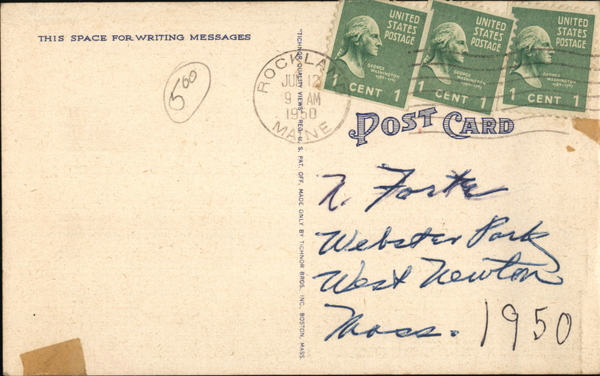 THIS SPACE FOR WRITING MESSAGES
500
"TICHNOR QUALITY VIEWS," REG. U. S. PAT. OFF. MADE ONLY BY TICHNOR BROS., INC., BOSTON, MASS.
ROCKLAND
JUN 12
9 AM
1950
MAINE
UNITED STATES POSTAGE
GEORGE WASHINGTON
1 CENT 1
UNITED STATES POSTAGE
GEORGE WASHINGTON
1 CENT 1
UNITED STATES POSTAGE
GEORGE WASHINGTON
1 CENT 1
POST CARD
N. Foste
Webster Park
West Newton
Mass. 1950